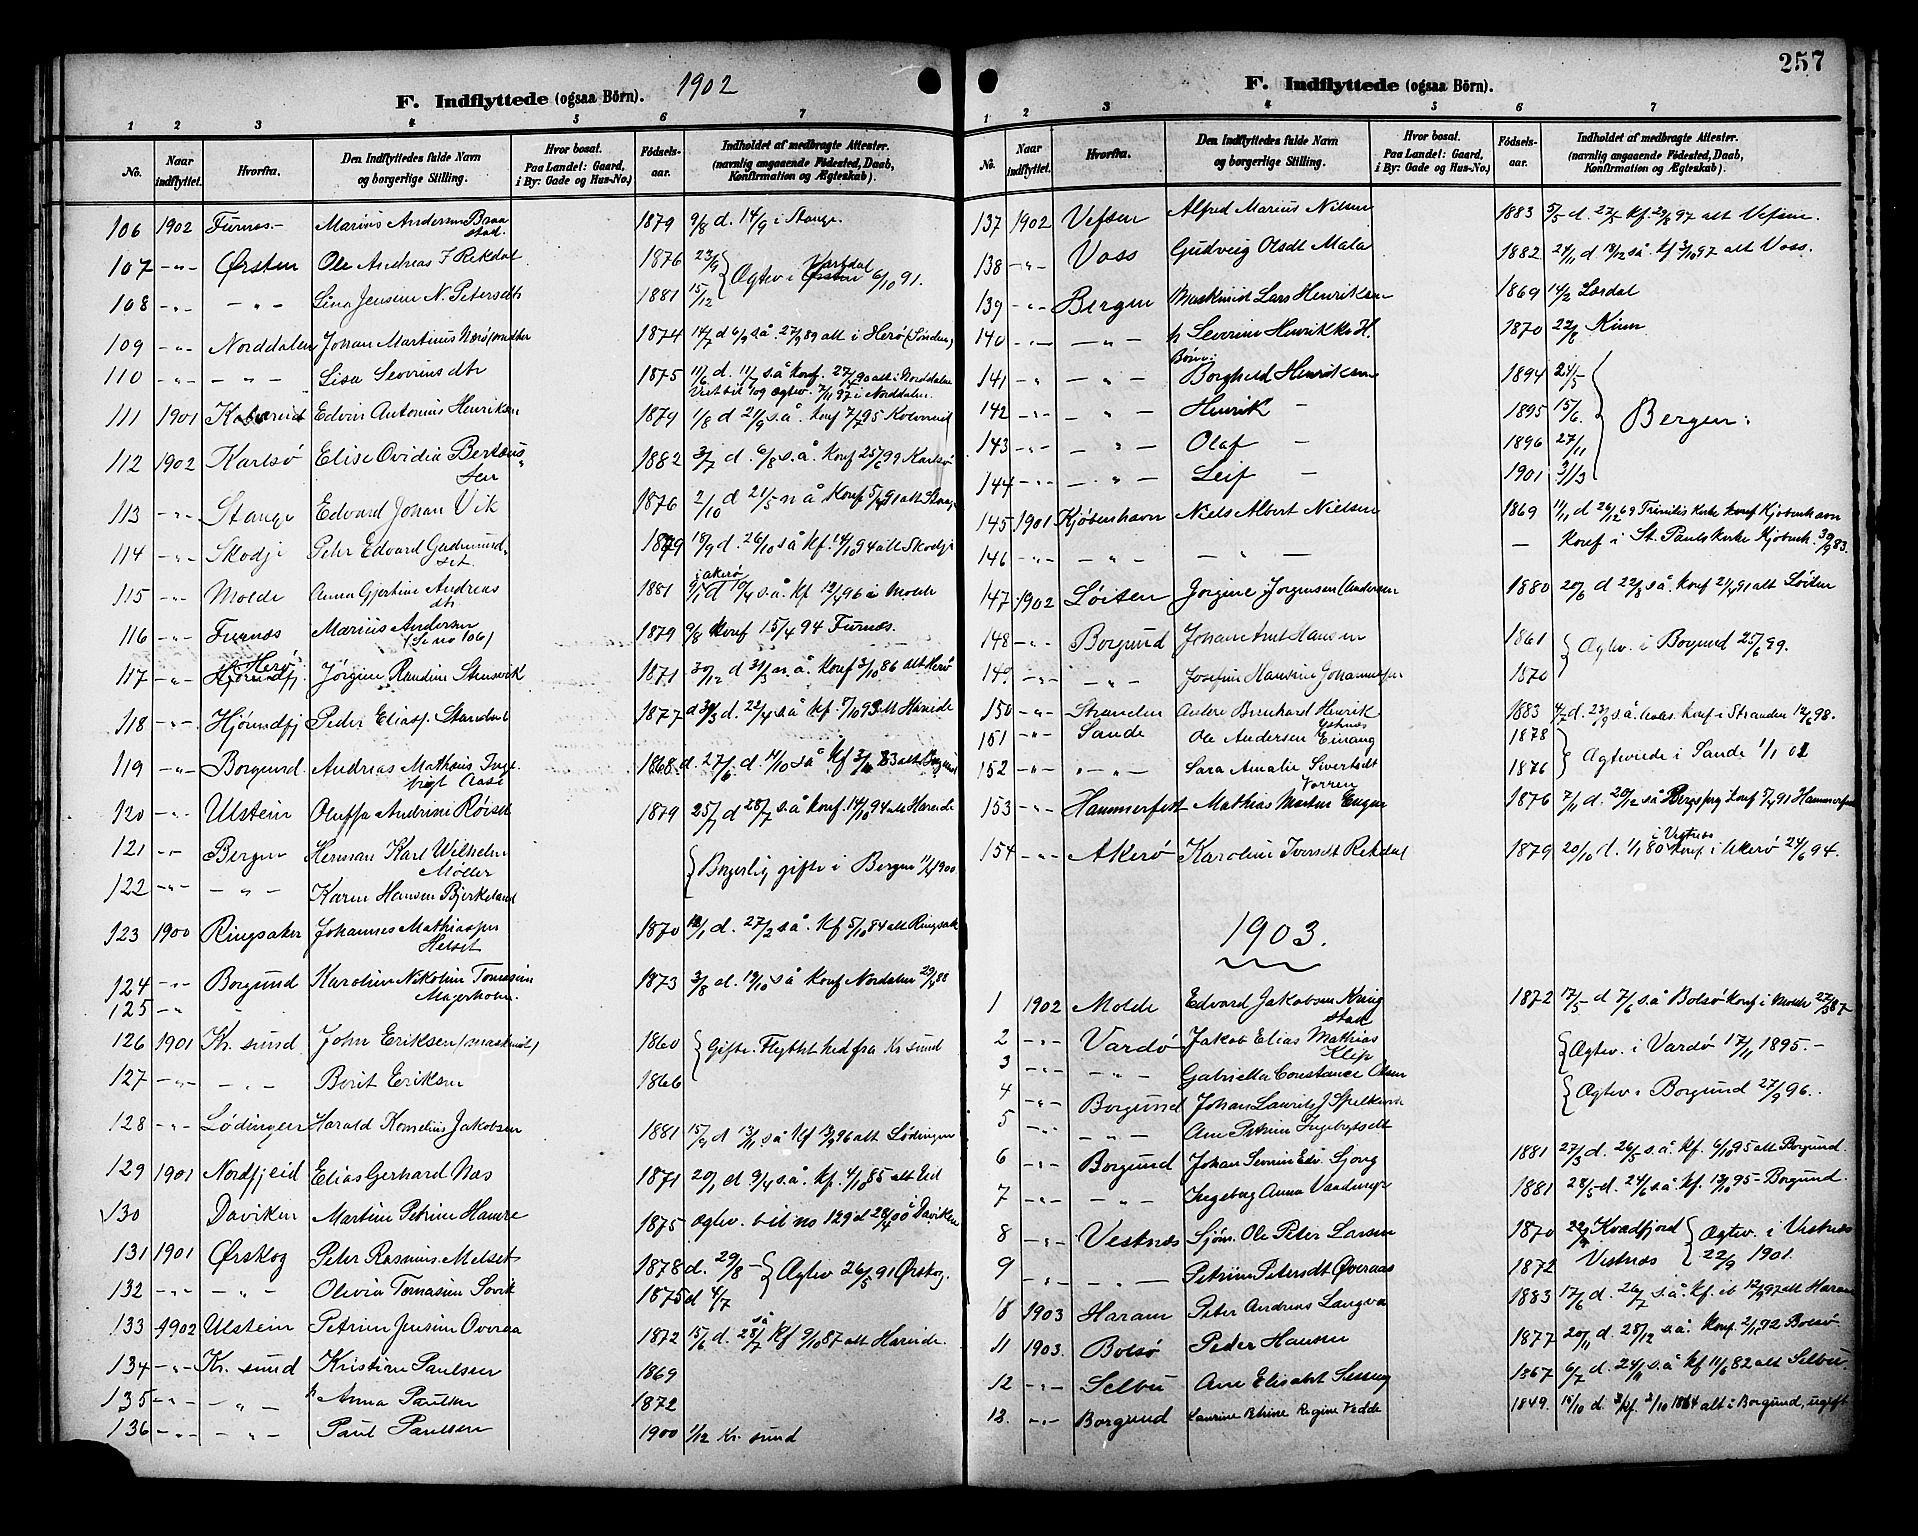 1902
F. Indflyttede (ogsaa Börn).
1 2 3 4 5 6 7
No. Naar indflyttet. Hvorfra. Den Indflyttedes fulde Navn og borgerlige Stilling. Hvor bosat. Paa Landet: Gaard, i By: Gade og Hus-No.) Födsels-aar. Indholdet af medbragte Attester. (navnlig angaaende Födested, Daab, Konfirmation og Ægteskab).
106 1902 Furnæs - Marius Andersen Braastad. 1879 9/8 d. 14/9 i Stange.
107 -"- Ørsten Ole Andreas F Rekdal 1876 23/9
Ægtev i Vartdal 6/10 91.
108 -"- -"- Lina Jensine N. Petersdtr 1881 15/12
109 -"- Norddalen Johan Martinus 1874 14/7 d 6/9 s.å. 27/9 89 alt i Herø (Sönden)
110 -"- -"- Lisa Severinsdtr 1875 11/6 d. 11/7 s.å konf. 27/4 90 alt i Norddalen
Ægtev. 7/11 97 i Norddalen.
111 1901 Kolvereid Edvin Antonius Henriksen 1879 1/8 d 21/9 s.å. Konf 7/7 95 Kolvereid
112 1902 Karlsö Elise Ovidia Bertheussen 1882 3/7 d. 6/8 s.å. Konf 25/6 99 Karlsö
113 -"- Stange Edvard Johan Vik 1876 2/10 d 21/5 n å Konf 5/4 91 alt Stange
114 -"- Skodje Peter Edvard Gudmundset 1879 18/9 d. 26/10 s å kf. 14/10 94 alt Skodje
115 -"- Molde Anna Gjertine Andreasdtr 1881 9/1 i Akerø d 10/4 s.å. Kf 12/4 96 i Molde
116 -"- Furnæs Marius Andersen (Se no 106) 1879 9/8 Konf 15/4 94 Furnæs.
117 -"- Herö Jørgine Randine Stensvik 1871 30/12 d 31/3 n.å. Konf 3/10 86 alt Herö
118 -"- Hjörundfj Peder Eliasf. Standal 1877 d. 22/4 s.å kf. 7/10 93 alt Hareide
119 -"- Borgund Andreas Mathæus Aase 1868 d. 27/6 d. 11/10 s å Kf 83 alt Borgund
120 -"- Ulstein Oluffa Andrine Røiset 1879 25/7 d 28/7 s.å konf 14/10 94 alt Hareide
121 -"- Bergen Herman Karl Wilhelm Möller
Borgerlig gifte i Bergen 11/4 1900
122 -"- -"- Karen Hansen Bjerkeland
123 1900 Ringsaker Johannes Mathiasen Helset 1870 d. 27/2 s å. Kf 5/10 84 alt Ringsaker
124 -"- Borgund Karoline Nikoline Tomasine Magerholm. 1873 3/8 d. 19/10 s å Konf Nordalen 29/4 88
125 -"-
126 1901 Kr. sund John Eriksen (maskinist) 1860
Gifte. Flyttet hed fra Kr sund
127 -"- -"- Berit Eriksen 1866
128 -"- Lödingen Harald Kornelius Jakobsen 1881 15/9 d 13/11 s å kf 13/9 96 alt Lödingen
129 1901 Nordfjeid Elias Gerhard Nas 1871 20/1 d. 9/4 s.å. kf. 4/10 85 alt Eid
130 Daviken Martine Petrine Hamre 1875 Ægtev. til no 129 d 28/4 00 å Daviken
131 1901 Ørskog Peter Rasmus Melset 1878 d. 29/8
Ægtev 26/5 91 Ørskog.
132 -"- -"- Olivia Tomasine Sovik 1875 d 4/7
133 1902 Ulstein Petrine Jensine Overaa 1872 15/6 d. 28/7 s å Kf 9/10 87 alt Hareide.
134 -"- Kr. sund Kristine Paulsen 1869
135 -"- -"- Anna Paulsen 1872
136 -"- -"- Paul Paulsen 1900 1/12 Kr. sund
257
F. Indflyttede (ogsaa Börn).
1 2 3 4 5 6 7
No. Naar indflyttet. Hvorfra. Den Indflyttedes fulde Navn og borgerlige Stilling. Hvor bosat. Paa Landet: Gaard, i By: Gade og Hus-No.) Födsels-aar. Indholdet af medbragte Attester. (navnlig angaaende Födested, Daab, Konfirmation og Ægteskab).
137 1902 Vefsen Alfred Marius Nilsen 1883 5/5 d. 27/5 Kf. 29/8 97 alt Vefsen.
138 -"- Voss Gudveig Olsdt Mala 1882 24/11 d 13/12 så Kf 3/10 97 alt Voss.
139 -"- Bergen Maskinist Lars Henriksen 1869 14/2 Lærdal
140 -"- -"- h Severine Henrikke H. 1870 22/8 Kinn
Börn:
141 -"- -"- Borghild Henriksen 1894 24/5
142 -"- -"- Henrik - 1895 15/6. Bergen:
143 -"- -"- Olaf - 1896 27/11
144 -"- -"- Leif - 1901 31/3
145 1901 Kjöbenhavn Niels Albert Nielsen 1869 11/11 d 26/12 69 Trinitis Kirke Konf Kjöbenhavn
146 -"- -"- -"- - Konf i St. Pauls Kirke Kjöbenh. 30/9 83.
147 1902 Löiten Jorgine Jorgensen (Andersen 1880 20/6 d 22/8 så. konf 21/4 91 alt Löiten
148 -"- Borgund Johan Arnt Hansen 1861
Ægtev. i Borgund 25/6 99.
149 -"- -"- Josefine Hansine 1870
150 -"- Stranden Andere Bernhard Henrik 1883 4/7 d. 23/9 s.å. konf i Stranden 12/6 98.
151 -"- Sande Ole Andersen Einang 1878
Ægteviede i Sande 1/1 02
152 -"- -"- Sara Amalie Sivertsdt Vorren 1876
153 -"- Hammerfest Mathias Martin 1876 7/11 d. 20/12 så Bergsfjord konf 7/4 91 Hammerfest
154 -"- Akerø Karoline Iversdt Rekdal 1879 20/10 d. 1/1 80 i Vestnes konf i Akerø 24/6 94.
1903.
1 1902 Molde Edvard Jakobsen Kringstad 1872 17/5 d 7/6 s.å Bolsö konf i Molde 87
2 -"- Vardö Jakob Elias Mathias Klep
Ægtev. i Vardö 17/11 1895. -
3 -"- -"- Gabriella Constance Olsen
4 -"- Borgund Johan Laurits J Spelkavik
Ægtev i Borgund 27/9 96.
5 -"- -"- Ane Petrine Ingebrigtsdt
6 -"- Borgund Johan Severin Edv. Ljong 1881 27/3 d. 26/5 s.å. kf. 6/10 95 alt Borgund.
7 -"- -"- Ingeborg Anna 1881 28/5 d. 24/6 så. kf. 13/10 95 - Borgund.
8 -"- Vestnæs Sjöm. Ole Peter Larsen 1870 Kvædfjord
Ægtev. i Vestnæs 22/9 1901.
9 -"- -"- Petrine Petersdt Øveraas 1872 Vestnæs
10 1903 Haram Peter Andreas Langva 1883 17/6 d. 26/7 s.å. kf. 12/9 97 alt Haram
11 1903. Bolsö Peder Hansen 1877 20/11 d. 28/12 s.å. Konf. 92 Bolsö.
12 -"- Selbu Ane Elisabet 1867 6/7 d. 24/11 s.å kf 11/6 82 alt Selbu.
12. -"- Borgund Laurine Petrine Regine Vedde 1849. 15/10 d. kf. 2/10 1864 alt i Borgund, ugift